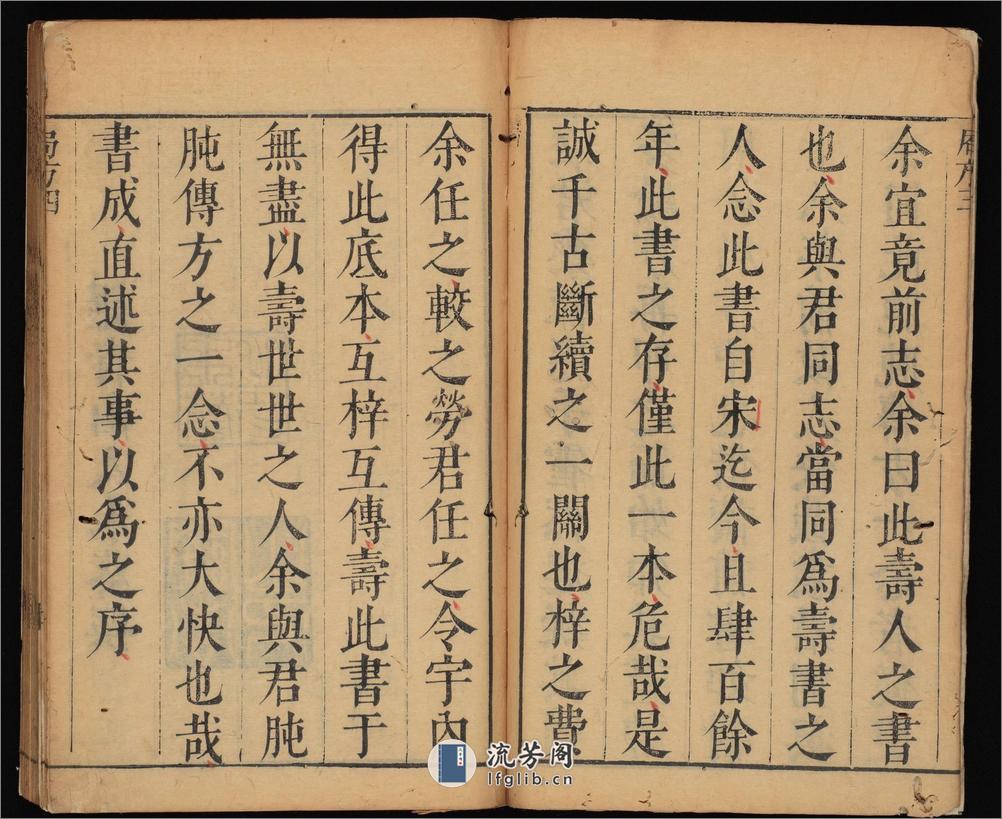 余宜竟前志余曰此壽人之書
也余與君同志當同爲壽書之
人念此書自宋迄今且肆百餘
年此書之存僅此一本危哉是
誠千古斷續之一關也梓之費
余任之較之勞君任之令宇內
得此底本互梓互傳壽此書于
無盡以壽世世之人余與君肫
肫傳方之一念不亦大快也哉
書成直述其事以爲之序
局方四
流芳阁
lfglib.cn